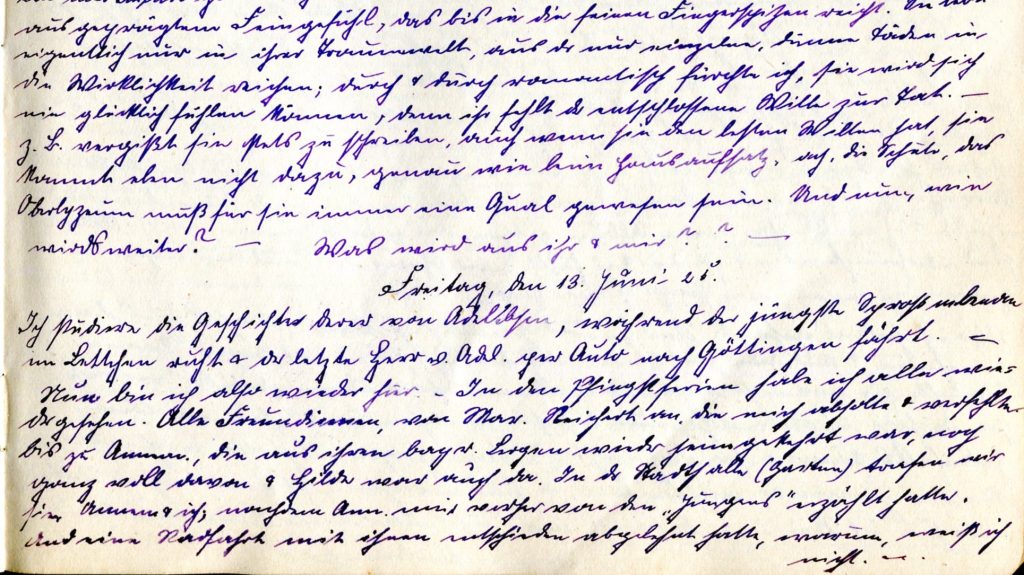 ausgeprägtem Feingefühl, das bis in die feinen Fingerspitzen reicht.
eigentlich nur in ihrer Traumwelt, aus dr nur einzelne, dünne Fäden in
die Wirklichkeit reichen; durch & durch romantisch fürchte ich, sie wird sich
nie glücklich fühlen können, denn ihr fehlt dr entschlossene Wille zur Tat. —
z. B. vergißt sie stets zu schreiben, auch wenn sie den besten Willen hat, sie
kommt eben nicht dazu, genau wie beim Hausaufsatz, ach, die Schule, das
Oberlyzeum muß für sie immer eine Qual gewesen sein. Und nun, wie
wirds weiter? — Was wird aus ihr & mir? ? —
Freitag, den 13. Juni 25.
Ich studiere die Geschichte derer von Adelebsen, während der jüngste Spross nebenan
im Bettchen ruht & dr letzte Herr v. Adl. per Auto nach Göttingen fährt. —
Nun bin ich also wieder hier. – In den Pfingstferien habe ich alle wie-
drgesehen. Alle Freundinnen, von Mar. Reichert an, die mich abholte & verfehlte
bis zu Annem., die aus ihren bayr. Bergen wieder heimgekehrt war, noch
ganz voll davon & Hilde war auch da. In dr Stadthalle (Garten) trafen wir
sie, Annem & ich; nachdem Ann. mir vorher von den „Jungens" erzählt hatte.
Und eine Radfahrt mit ihnen entschieden abgelehnt hatte, warum, weiß ich
nicht. —